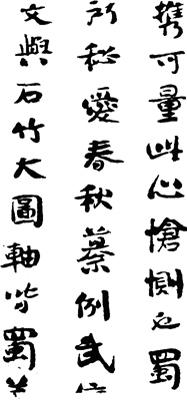 携可量此心愴惻也蜀
所秘愛春秋纂例武
文與石竹大圖軸皆蜀